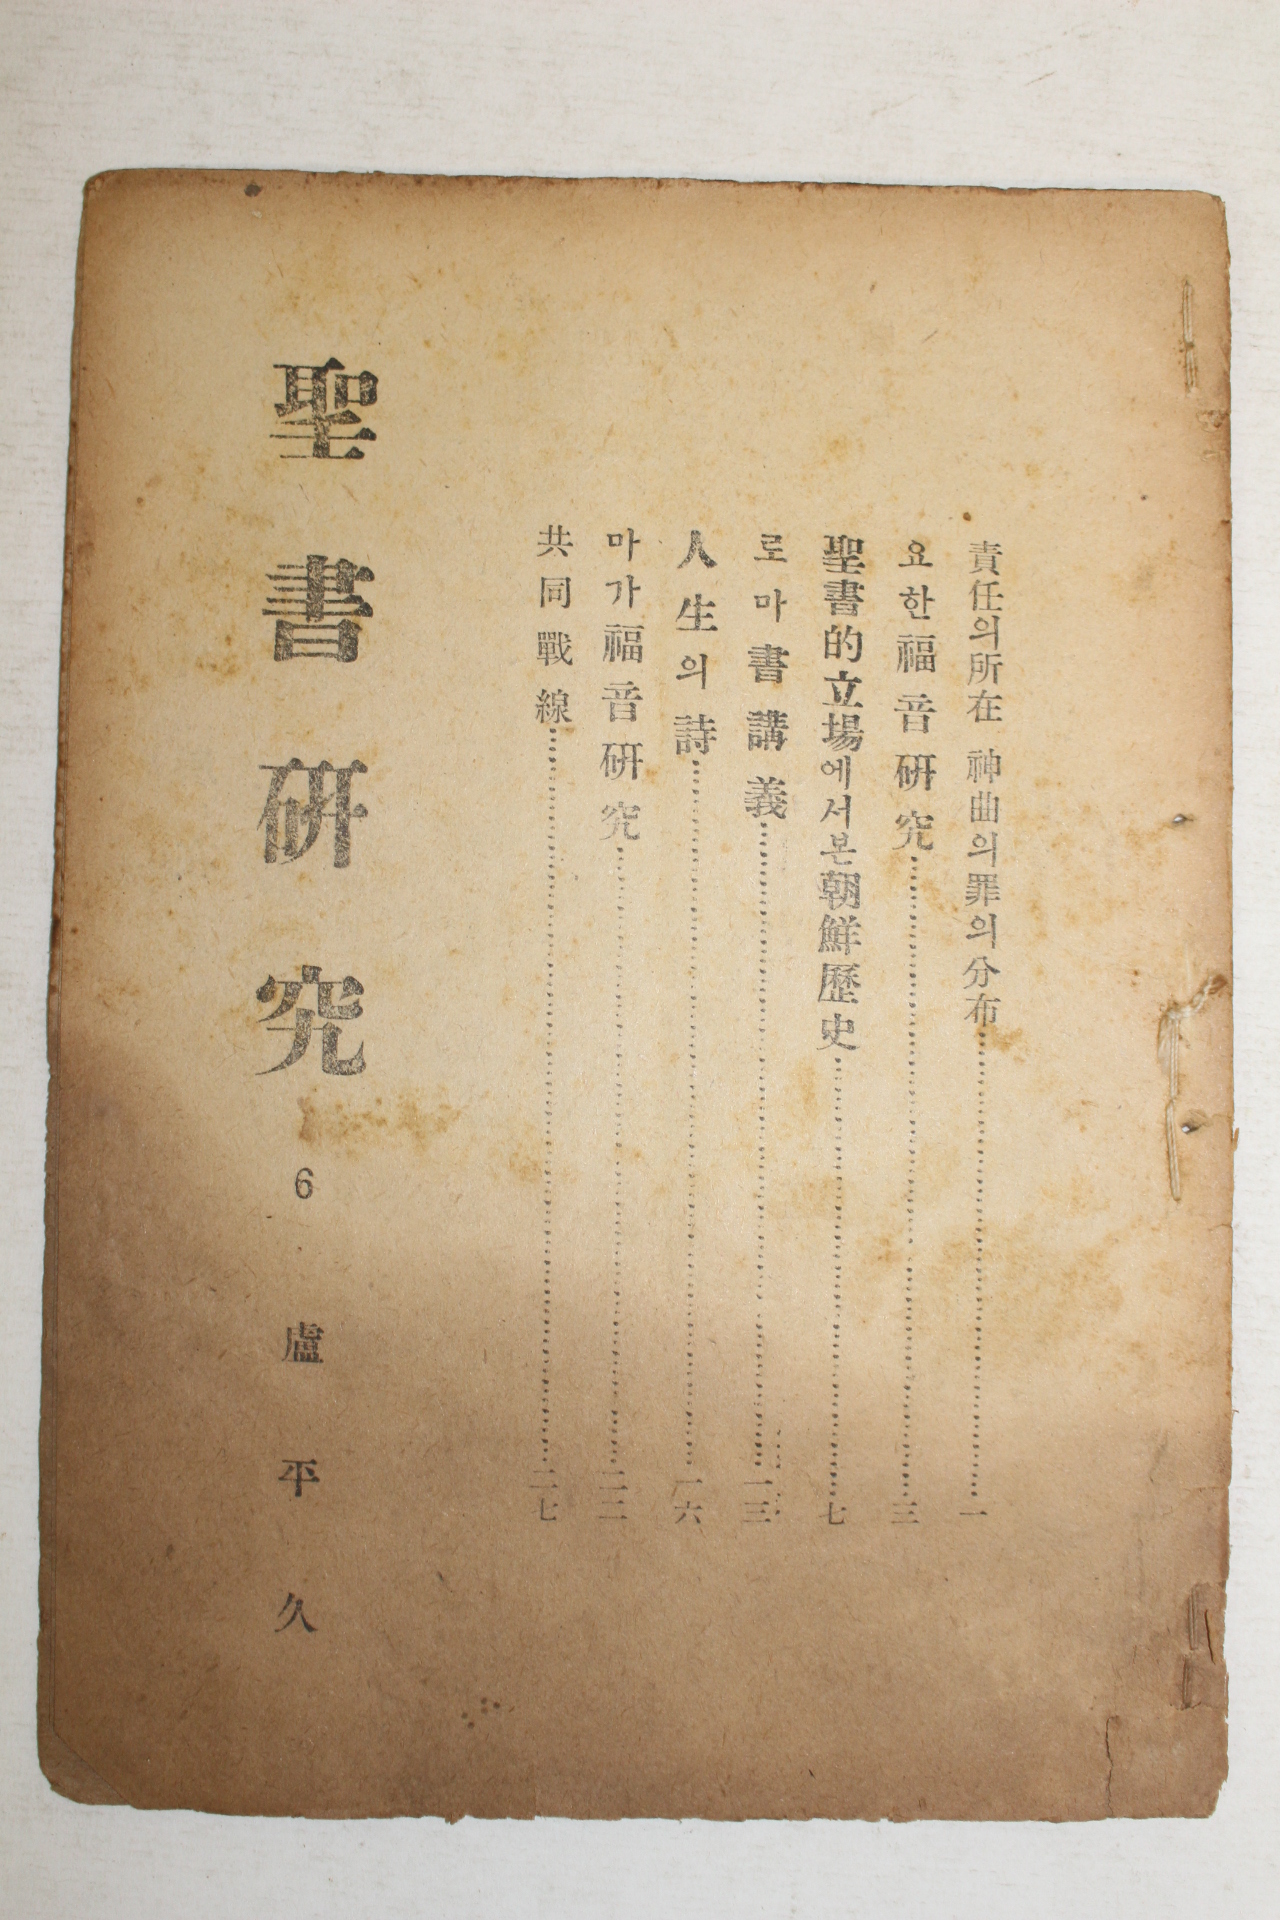 責任의所在 神曲의罪의分布……一
요한福音研究……三
聖書的立場에서본朝鮮歷史……七
로마書講義……一三
人生의詩……一六
마가福音研究……二二
共同戰線……二七
聖書研究 6 盧平久